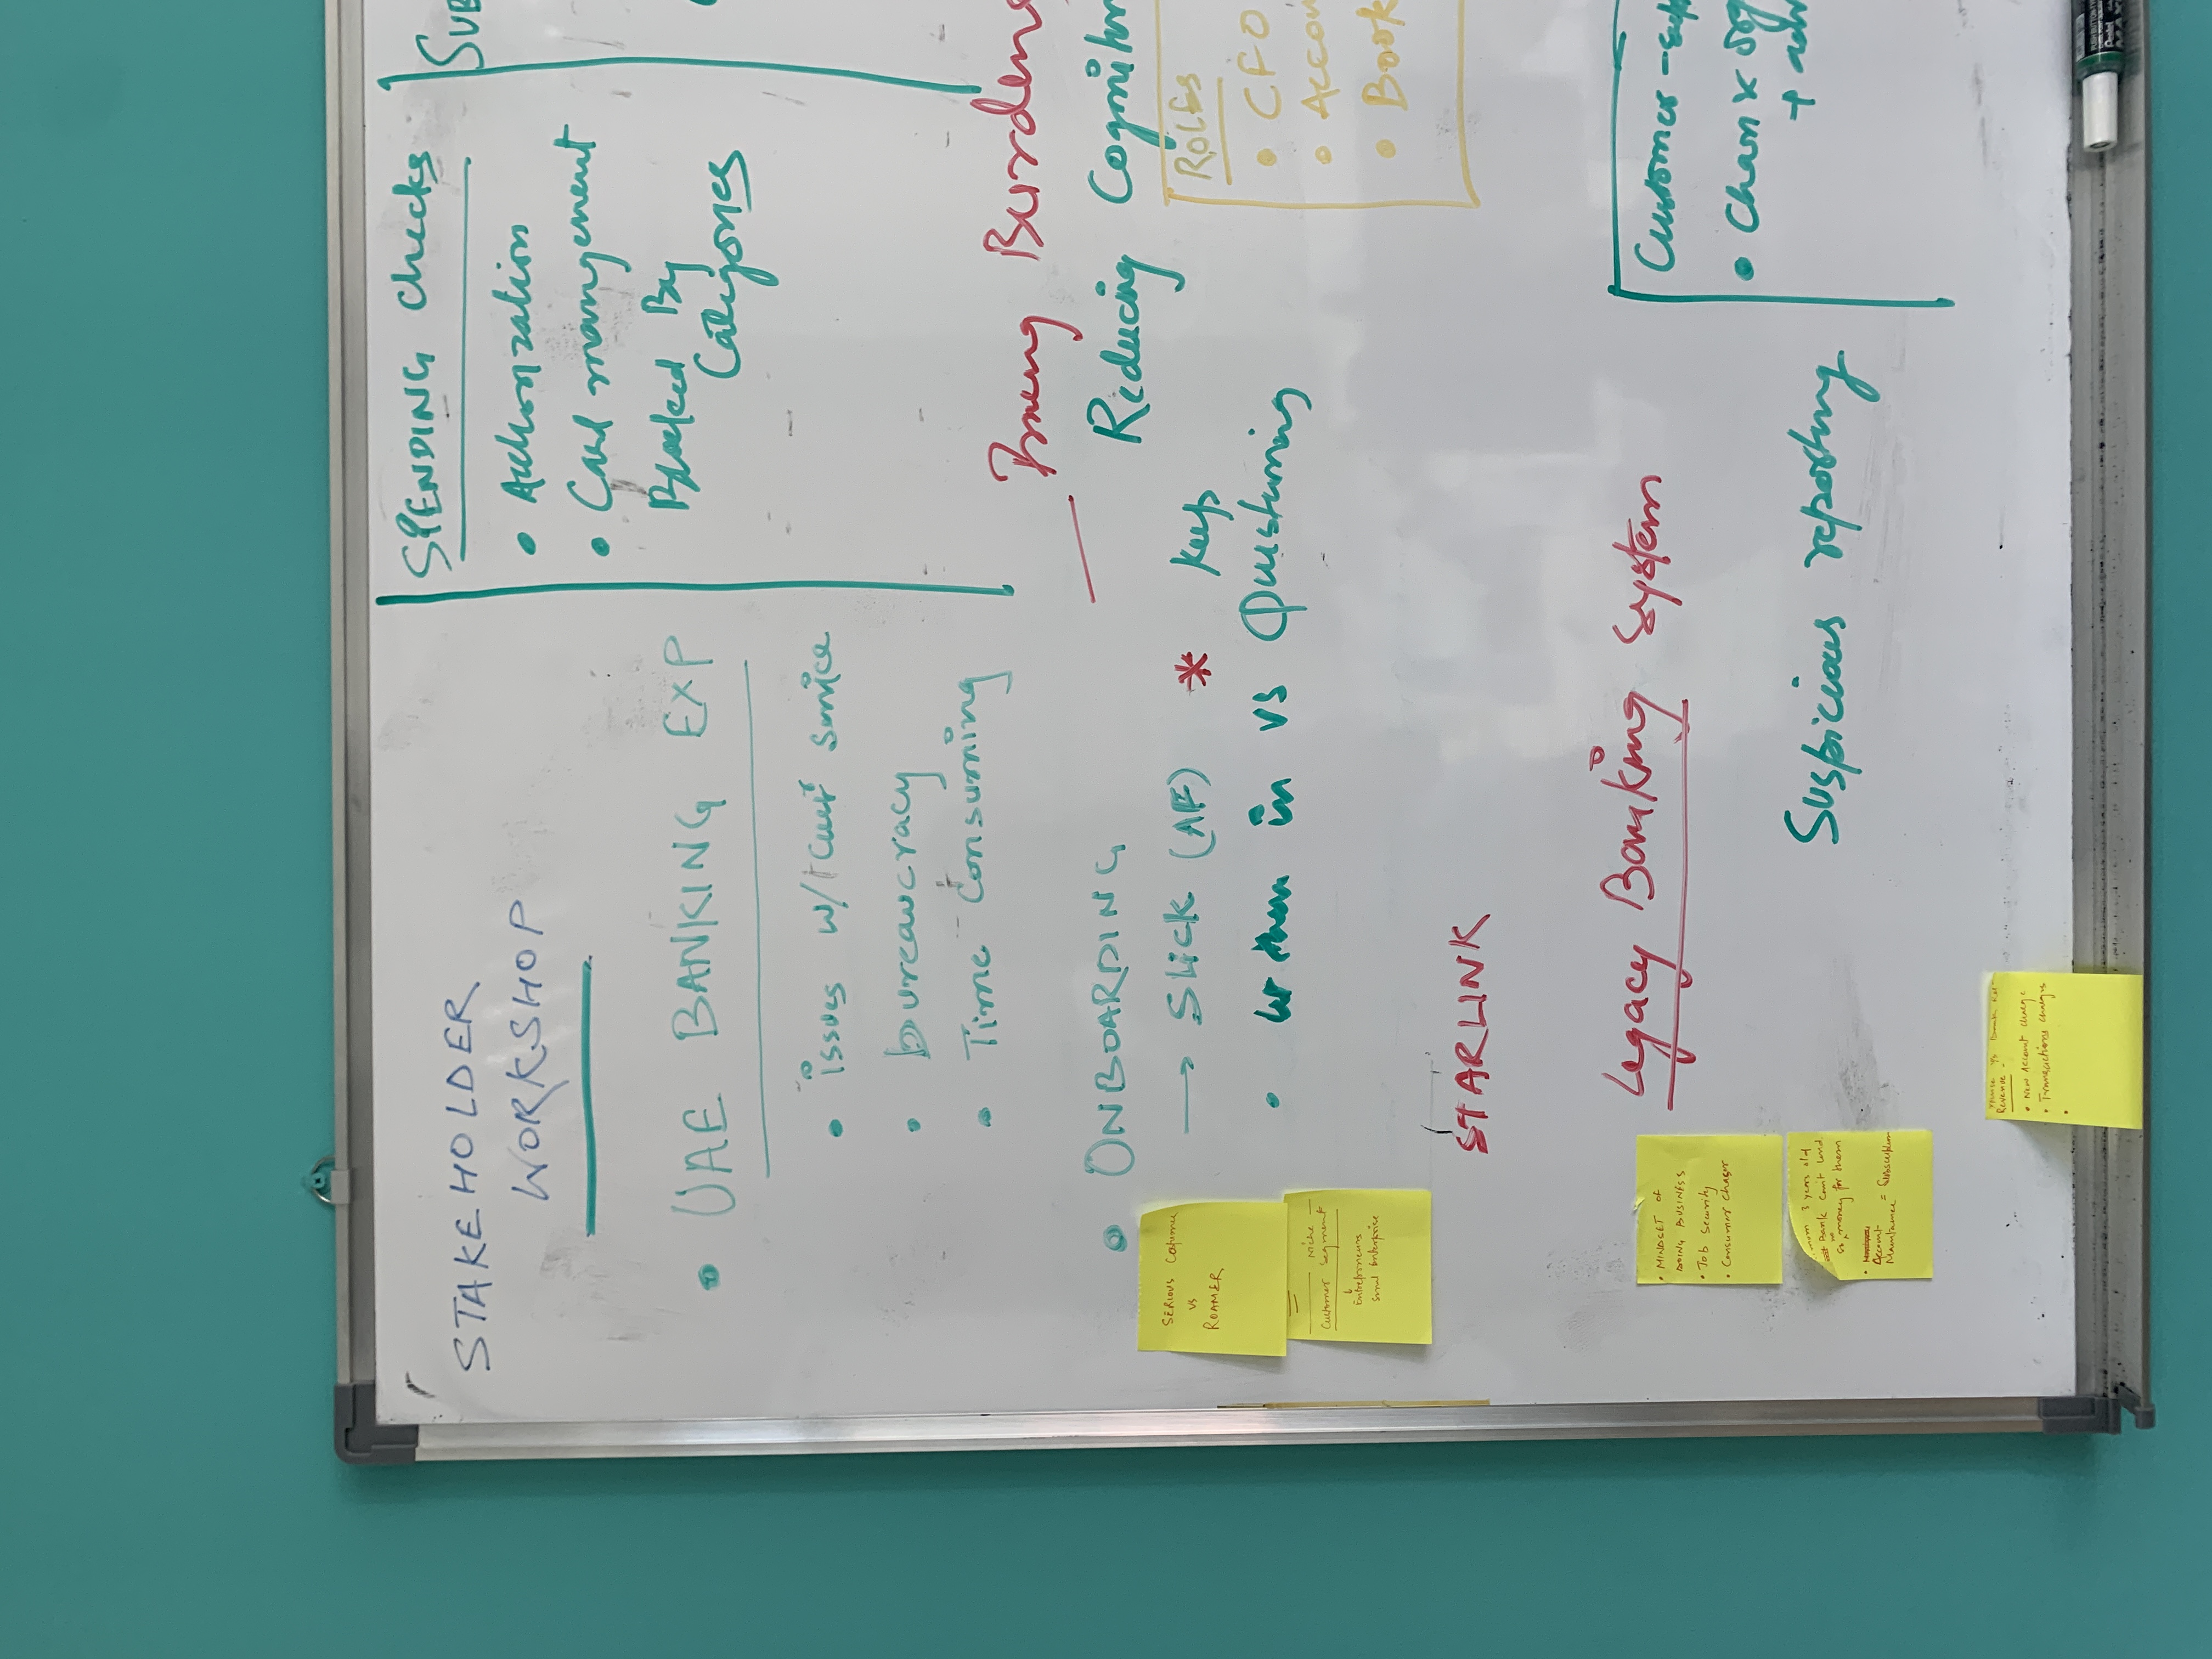 STAKEHOLDER
WORKSHOP
• UAE BANKING EXP
• issues w/ cust service
• bureaucracy
• Time consuming
• ONBOARDING
→ Slick (AF) *
• let them in vs Keep
Questioning
STARLINK
Legacy Banking System
Suspicious reporting
SPENDING checks
• Authorization
• Card management
Blocked By
Categories
SUB
Burdens
Reducing Cognitiv
ROLES
• CFO
• Accou
• Book
Customer - exp
+ adv
SERIOUS Customer
vs
ROAMER
Niche
Customer Segment
Entrepreneurs
Small Enterprise
• MINDSET of
DOING BUSINESS
• Job Security
• Consumer
3 years old
Bank can't lend
money for them
• Account
Maintanance = Subscription
Revenue -
• New Account charge
• Transactions charges
•